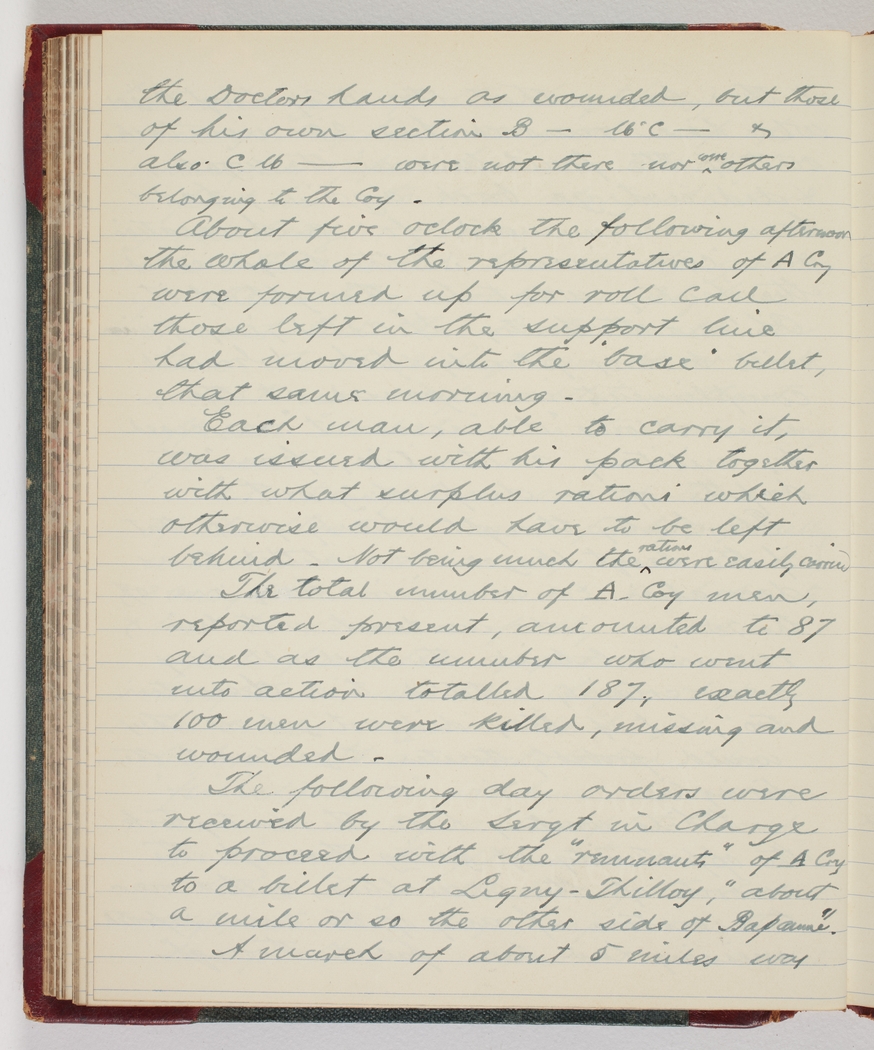 the Doctors hands as wounded, but those
of his own section B — McC — &
also C M —— were not there nor some others
belonging to the Coy.
About five oclock the following afternoon
the whole of the representatives of A Coy
were formed up for roll call
those left in the support line
had moved into the "base" billet,
that same morning -
Each man, able to carry it,
was issued with his pack together
with what surplus rations which
otherwise would have to be left
behind - Not being much the rations were easily carried
The total number of A. Coy men,
reported present, amounted to 87
and as the number who went
into action totalled 187, exactly
100 men were killed, missing and
wounded -
The following day orders were
received by the Sergt in Charge
to proceed with the "remnants" of A Coy
to a billet at Ligny-Thilloy, "about
a mile or so the other side of Bapaume".
A march of about 5 miles was